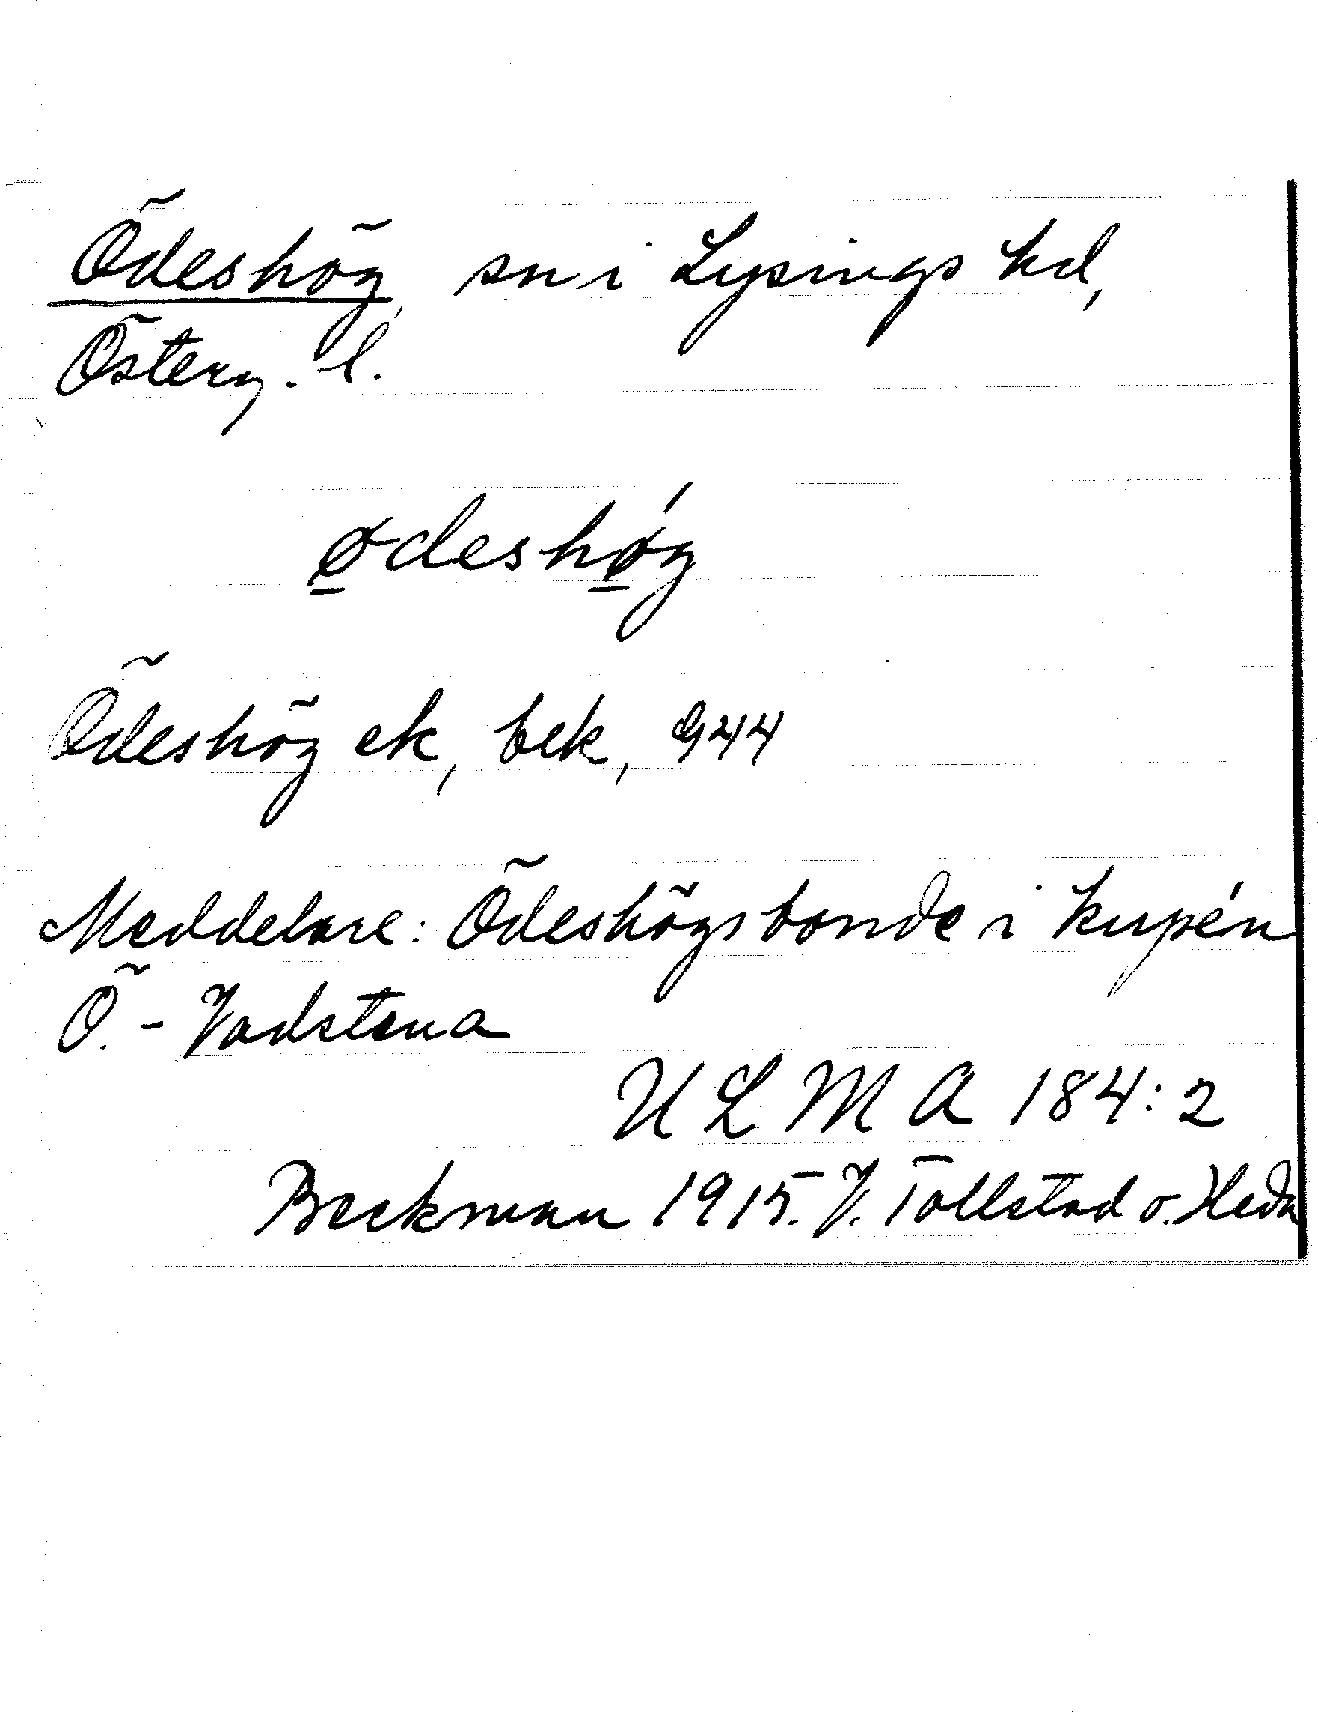 Ödeshög, sn i Lysings hd,
Österg. l.
ø̲deshǿ̲g
Ödeshög ek, bek, 944
Meddelare: Ödeshögsbonde i kupén
Ö. - Vadstena
ULMA 184:2
Beckman 1915. V. Tollstad o. Heda